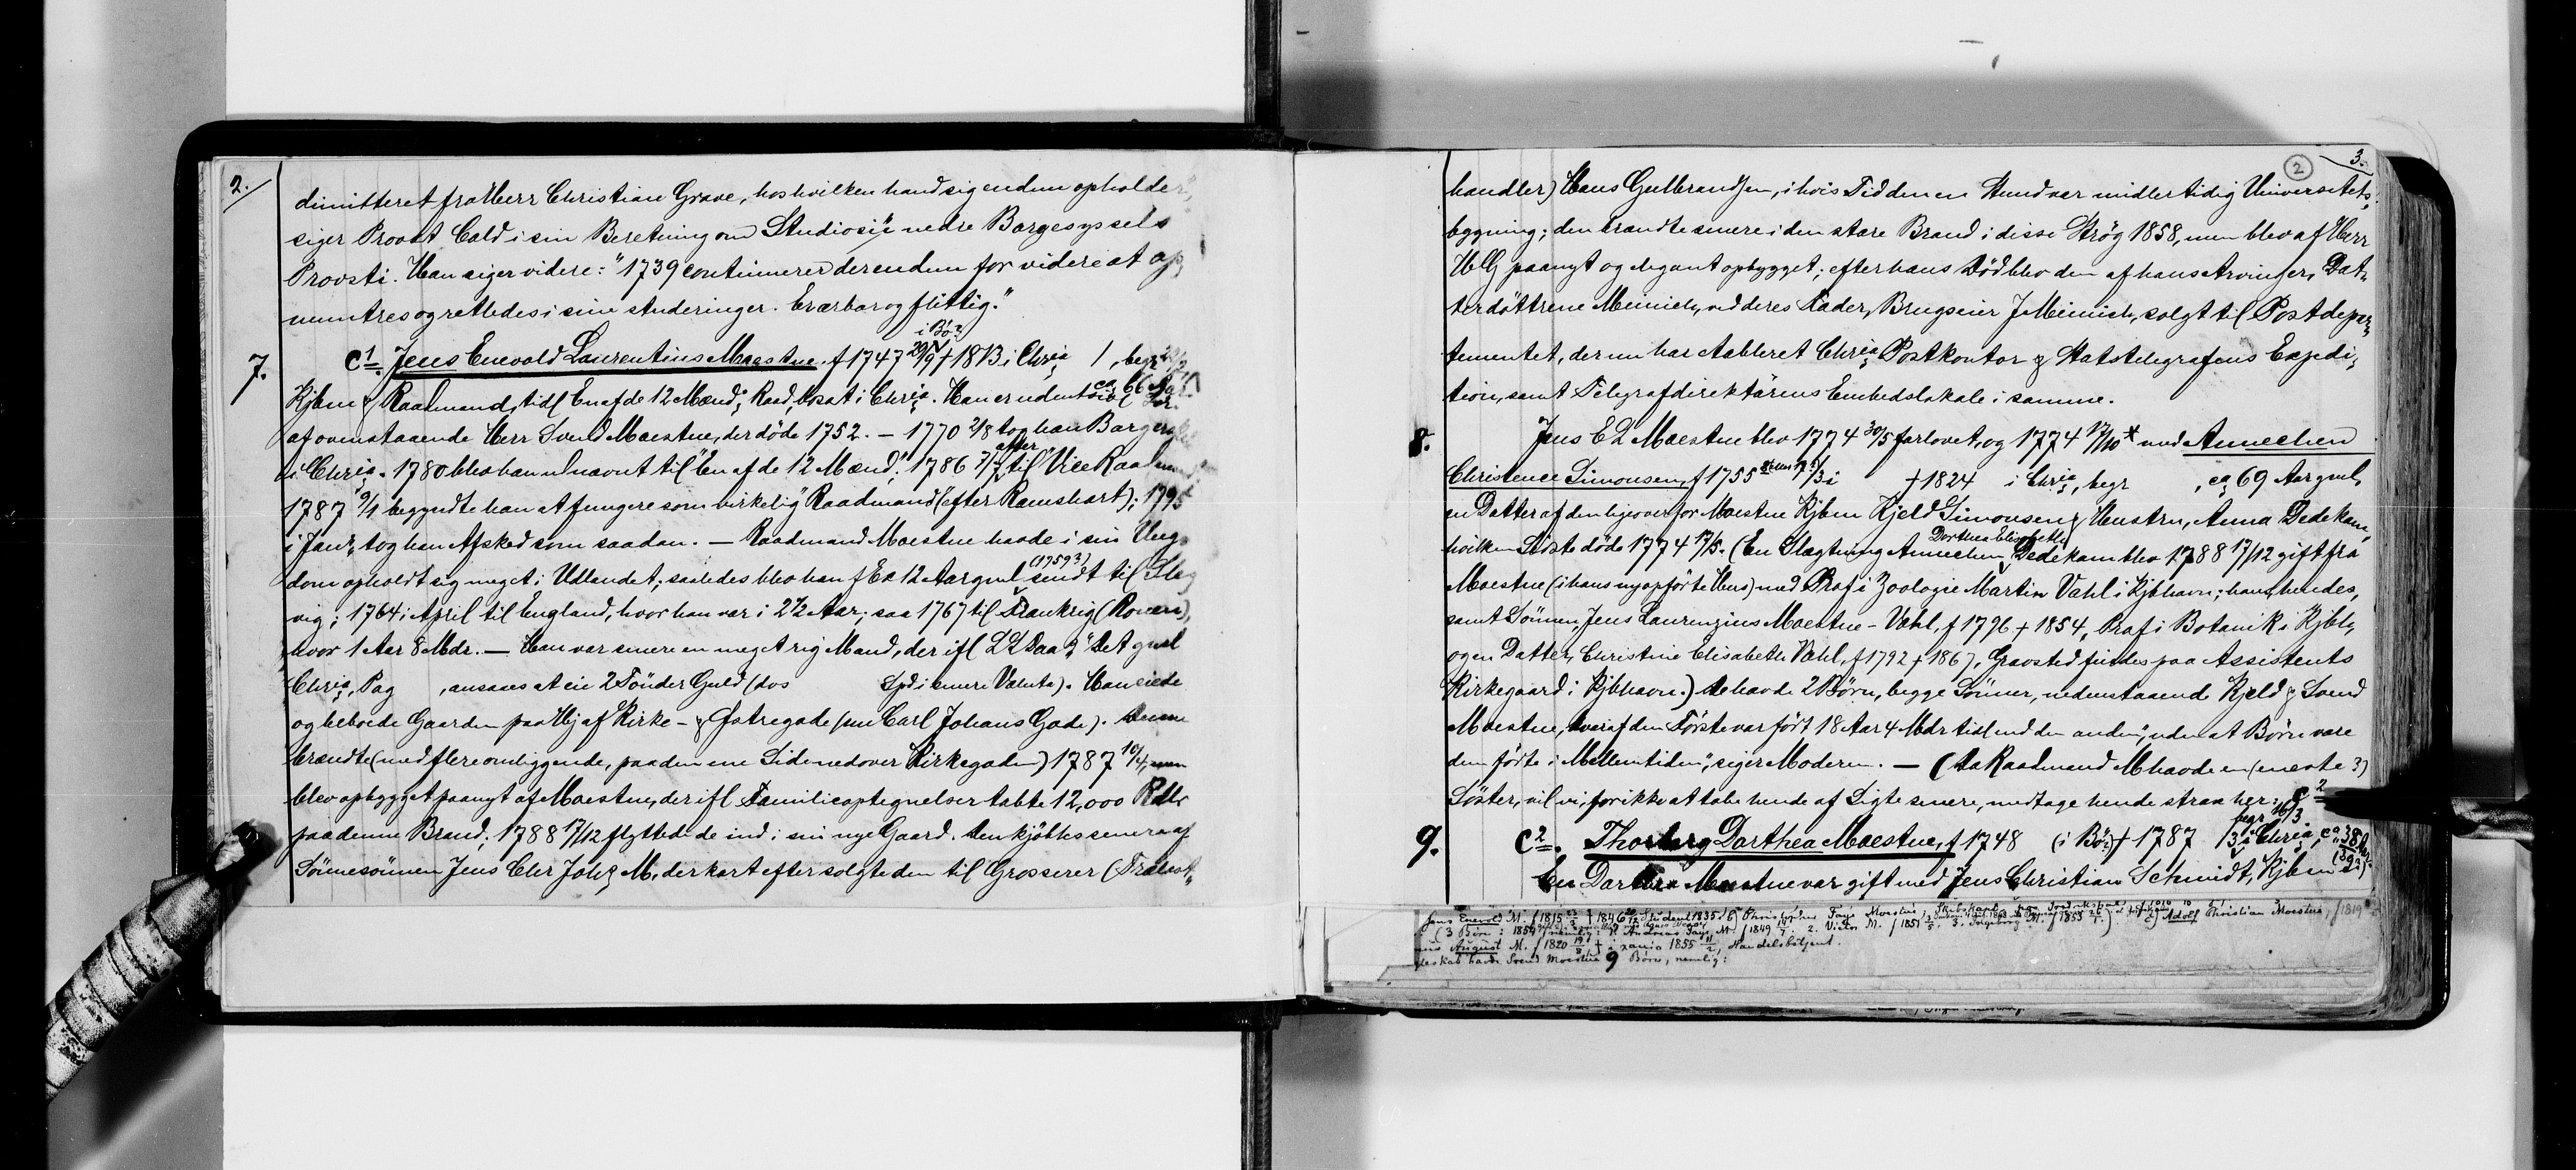 2.
dimitteret fra Herr Christian Grave, hos hvilken hand sig endnu opholder",
siger Provst Cold i sin Beretning om Studiosi i nedre Borgesyssels
Provsti. Han siger videre: "1739 continuerer der endnu for videre at op,
muntres og retledes i sine studeringer. Er ærbar og flittig."
i Bö?
7. C1. Jens Enevold Laurentius Maestue, f 1747 20/9 † 1813 i Chria / , begr
Kjbm & Raadmand, tidl En af de 12 Mænd, bosat i Chria. Han er udentvivl Sön
ca 66 Aar
af ovenstaaende Herr Svend Maestue, der döde 1752. — 1770 2/8 tog han Borgerskab
i Chria. 1780 blev han udnævnt til "En af de 12 Mænd"; 1786 til Vice Raadmand
efter
1787 9/1 begyndte han at fungere som virkelig Raadmand (efter Ramshart); 1795
i Janr, tog han Afsked som saadan. — Raadmand Maestue havde i sin Ung,
dom opholdt sig meget i Udlandet; saaledes blev han f Ex 12 Aar gml sendt til Sles
(1759?)
vig; 1764 i April til England, hvor han var i 2 1/2 Aar; saa 1767 til Frankrig (Rouen),
hvor 1 Aar 8 Mdr. — Han var senere en meget rig Mand, der ifl L L Daa's "Det gml
Chria, Pag , ansaaes at eie 2 Tönder Guld (dvs Spd i senere Valuta). Han eiede
og beboede Gaarden paa Hj af Kirke- & Østregade (nu Carl Johans Gade). Denne
brændte (med flere omliggende, paa den ene Side nedover Kirkegaden) 1787 10/4, men
blev opbygget paanyt af Maestue, der ifl Familieoptegnelser tabte 12,000 Rdlr
paa denne Brand; 1788 17/12 flyttede de ind i sin nye Gaard. Den kjöbtes senere af
Sönnesönnen Jens Chr Joh M, der kort efter solgte den til Grosserer (Trælast,
2 3.
handler) Hans Gulbrandsen, i hvis Tid den en Stund var midlertidig Universitets,
bygning; den brændte senere i den store Brand i disse Strög 1858, men blev af Herr
H G paanyt og elegant opbygget; efter hans Död blev den af hans Arvinger, Dat,
terdöttrene Meinich, ved deres Fader, Brugseier J Meinich, solgt til Postdepar,
tementet, der nu har etableret Chria Postkontor & Statstelegrafens Expedi,
tion, samt Telegrafdirektörens Embedslokale i samme.
8. Jens E L Maestue blev 1774 30/5 forlovet, og 1774 17/10 * med Annechen
Christence Simonsen, f 1755 i † 1824 i Chria, begr , ca 69 Aar gml,
en Datter af den ligeoverfor Maestue Kjbm Kjeld Simonsen & Hustru, Anna Dedekam,
hvilken Sidste döde 1774 17/5. (En Slægtning Annechen Dedekam blev 1788 17/12 gift fra
Dorthea Elisabeth
Maestue (i hans nyopförte Hus) med Prof i Zoologie Martin Vahl i Kjbhavn; hans, hendes,
samt Sönnen, Jens Laurenzius Maestue-Vahl, f 1796 † 1854, Prof i Botanik i Kjbh,
og en Datter, Christine Elisabeth Vahl, f 1792 † 1867, Gravsted findes paa Assistents
Kirkegaard i Kjbhavn.) De havde 2 Börn, begge Sönner, nedenstaaende Kjeld & Svend
Maestue, hvoraf den Förste var födt "18 Aar 4 Mdr tidl end den anden", uden at Börn vare
dem födte i Mellemtiden", siger Moderen. — (Da Raadmand M havde en (eneste?)
Söster, vil vi, for ikke at tabe hende af Sigte senere, medtage hende strax her: C2
begr 16/3
9. C2. Thorborg Dorthea Maestue, f 1748 (i Bö?) † 1787 /3 i Chria, ca 38 Aar
(39?)
En Dorthea Maestue var gift med Jens Christian Schmidt, Kjbm i
Jens Enevold M. f 1815 † 1846 Student 1835. b) Christopher Faye Moestue, c) Adolf Christian Moestue, f 1819
(3 Börn: 1. Andreas Faye M. f 1849 2. Victor M. f 1851 3. Ingeborg M. f 1855
August M. f 1820 † i xania 1855 Handelsbetjent.
havde Svend Moestue 9 Börn, nemlig: